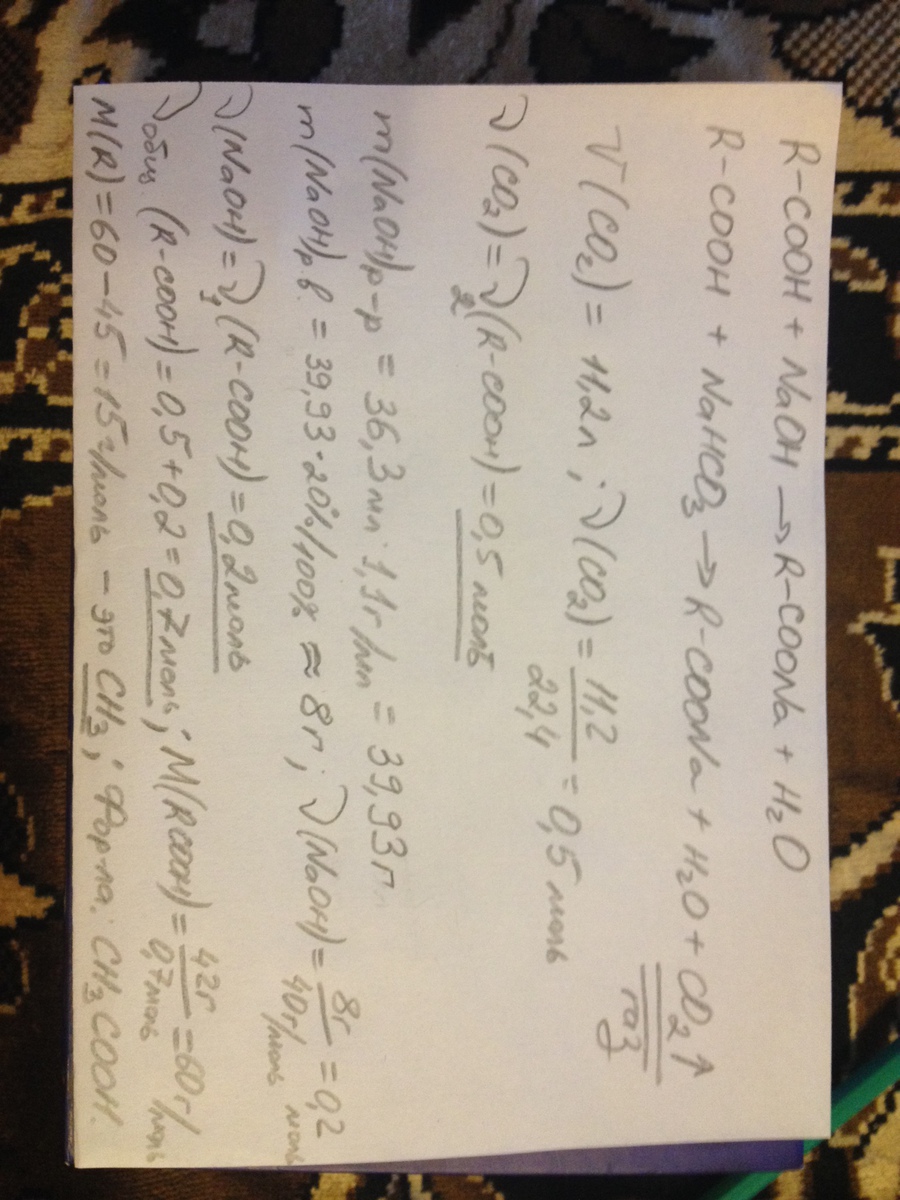 R-COOH + NaOH → R-COONa + H₂O
R-COOH + NaHCO₃ → R-COONa + H₂O + CO₂↑
газ
V(CO₂) = 11,2л; ν(CO₂) = 11,2/22,4 = 0,5 моль
ν(CO₂) = ν₂(R-COOH) = 0,5 моль
m(NaOH)р-р = 36,3 мл · 1,1 г/мл = 39,93 г.
m(NaOH)р.в. = 39,93 · 20%/100% ≈ 8г; ν(NaOH) = 8г/40г/моль = 0,2 моль
ν(NaOH) = ν₁(R-COOH) = 0,2 моль
νобщ (R-COOH) = 0,5 + 0,2 = 0,7 моль; M(RCOOH) = 42г/0,7моль = 60 г/моль
M(R) = 60 - 45 = 15 г/моль - это CH₃; Фор-ла: CH₃COOH.